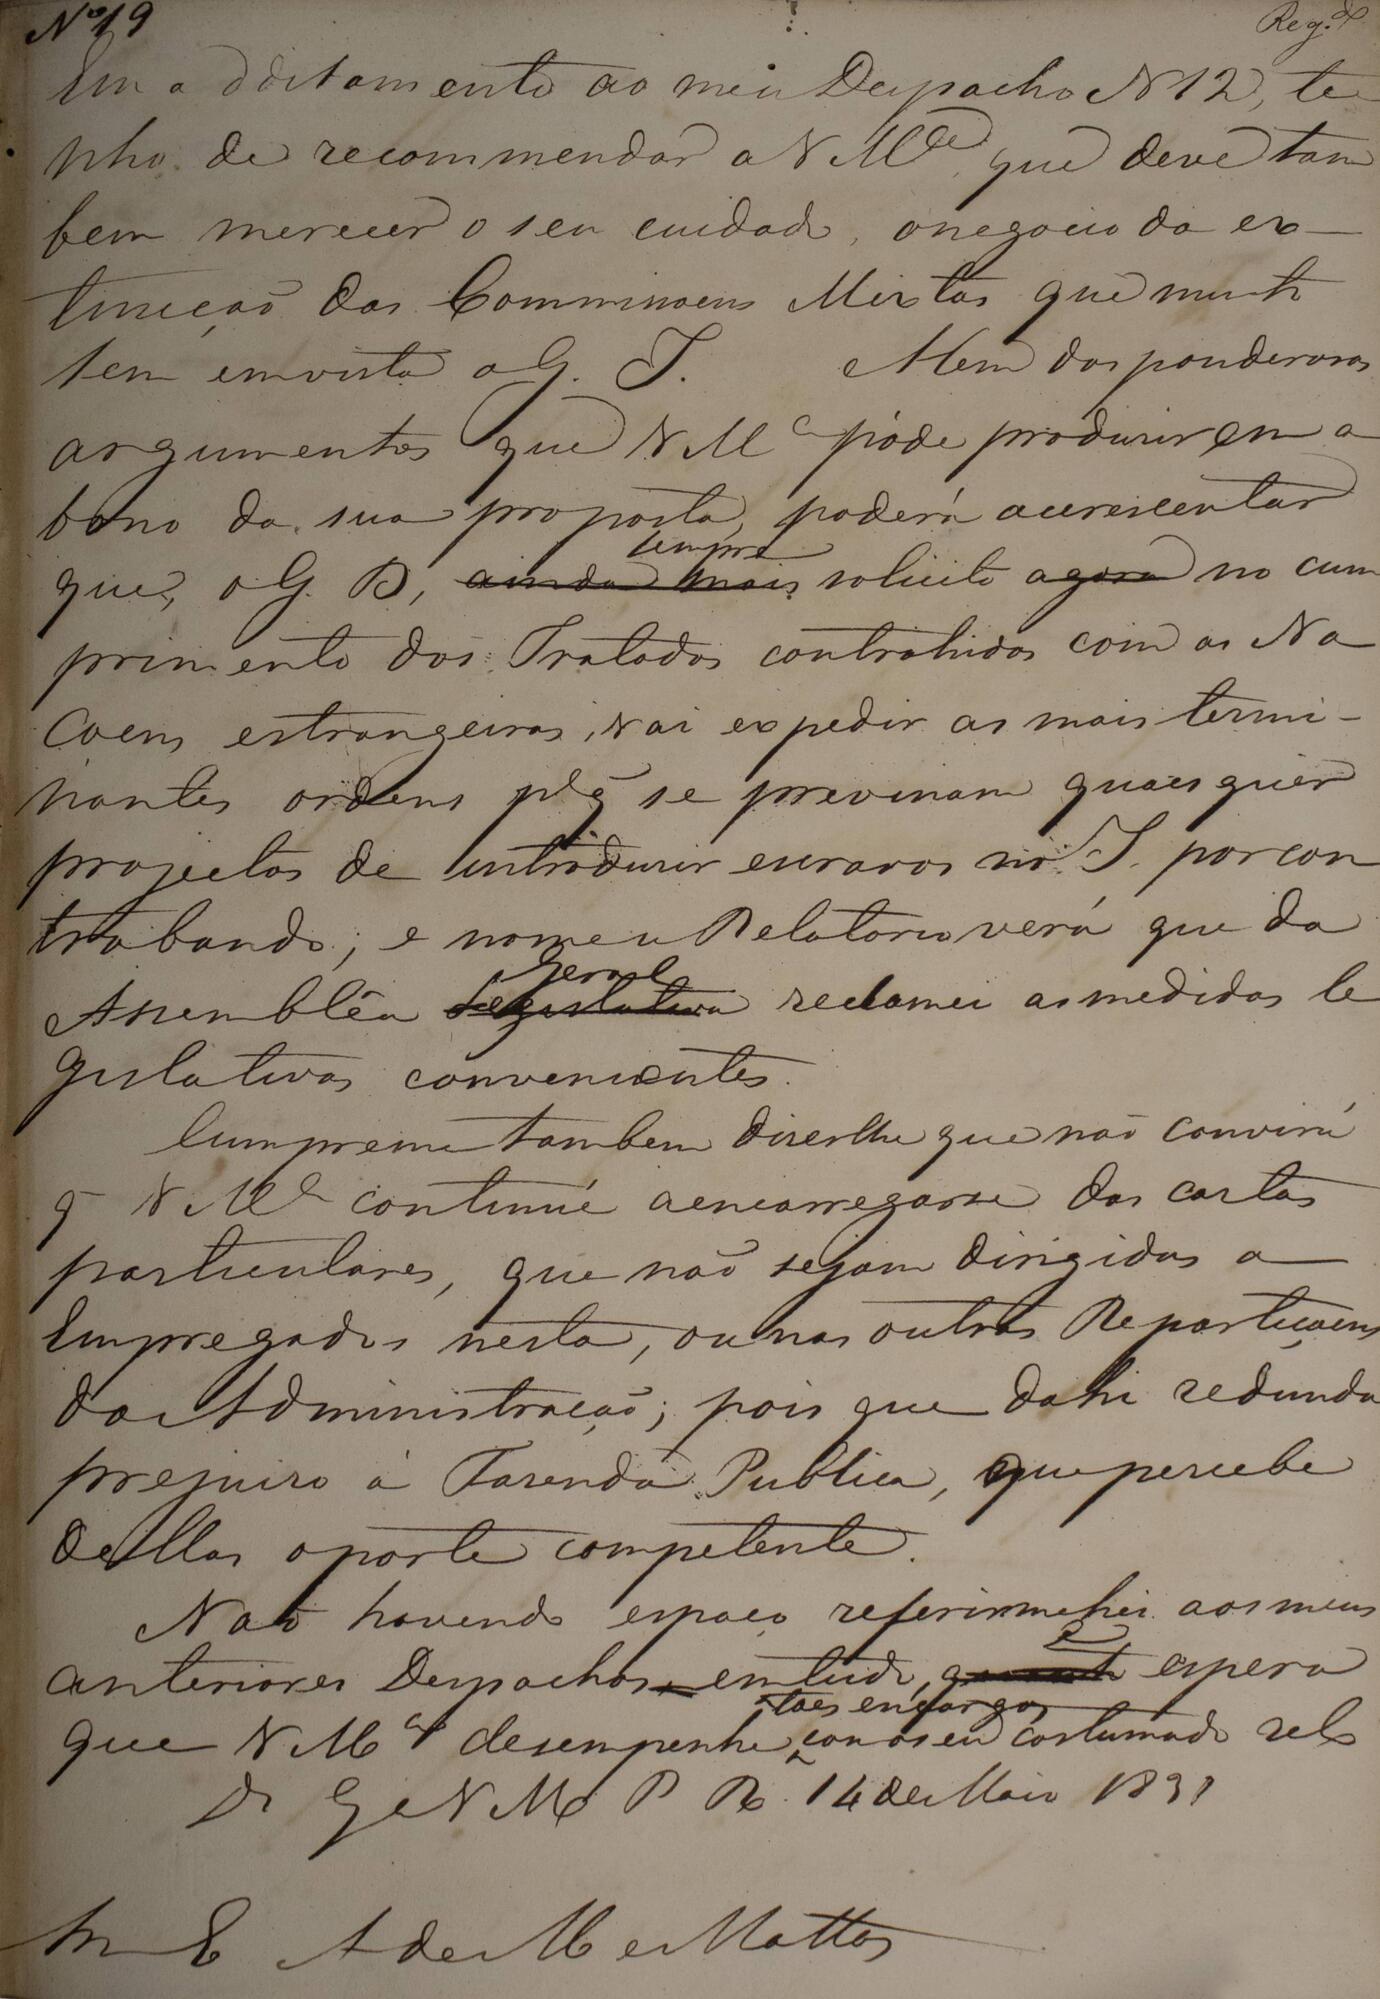 Nº 19
Reg.do
Em additamento ao meu Despacho N 12, te
nho de recommendar a V Mce que deve tam
bem merecer o seu cuidado, o negocio da ex-
tincção das Commissoens Mixtas que muito
tem em vista o G. I. Alem dos ponderosos
argumentos que V Mce póde produzir em a
bono da sua proposta, poderá accrescentar
sempre
que, o G. B, ainda mais solicito agora no cum
primento dos Tratados contrahidos com as Na
çoens estrangeiras, vai expedir as mais termi-
nantes ordens pª q̃ se previnam quaesquer
projectos de introduzir escravos no I. por con
trabando; e no meu Relatorio verá que da
Geral
Assemblêa Legislativa reclamei as medidas le
gislativas convenientes.
Cumpreme tambem dizerlhe que não convirá
q V Mce continúe a encarregarse das cartas
particulares, que não sejam dirigidas a
Empregados nesta, ou nas outras Repartiçoens
da Administração; pois que dahi redunda
prejuizo á Fazenda Publica, que percebe
dellas o porte competente.
Não havendo espaço referirmehei aos meus
e
anteriores Despachos em tudo, espero
taes encargos
que V Mce desempenhe com o seu costumado zelo
Ds Ge V M P R 14 de Maio 1831
Sr E A de M e Mattos